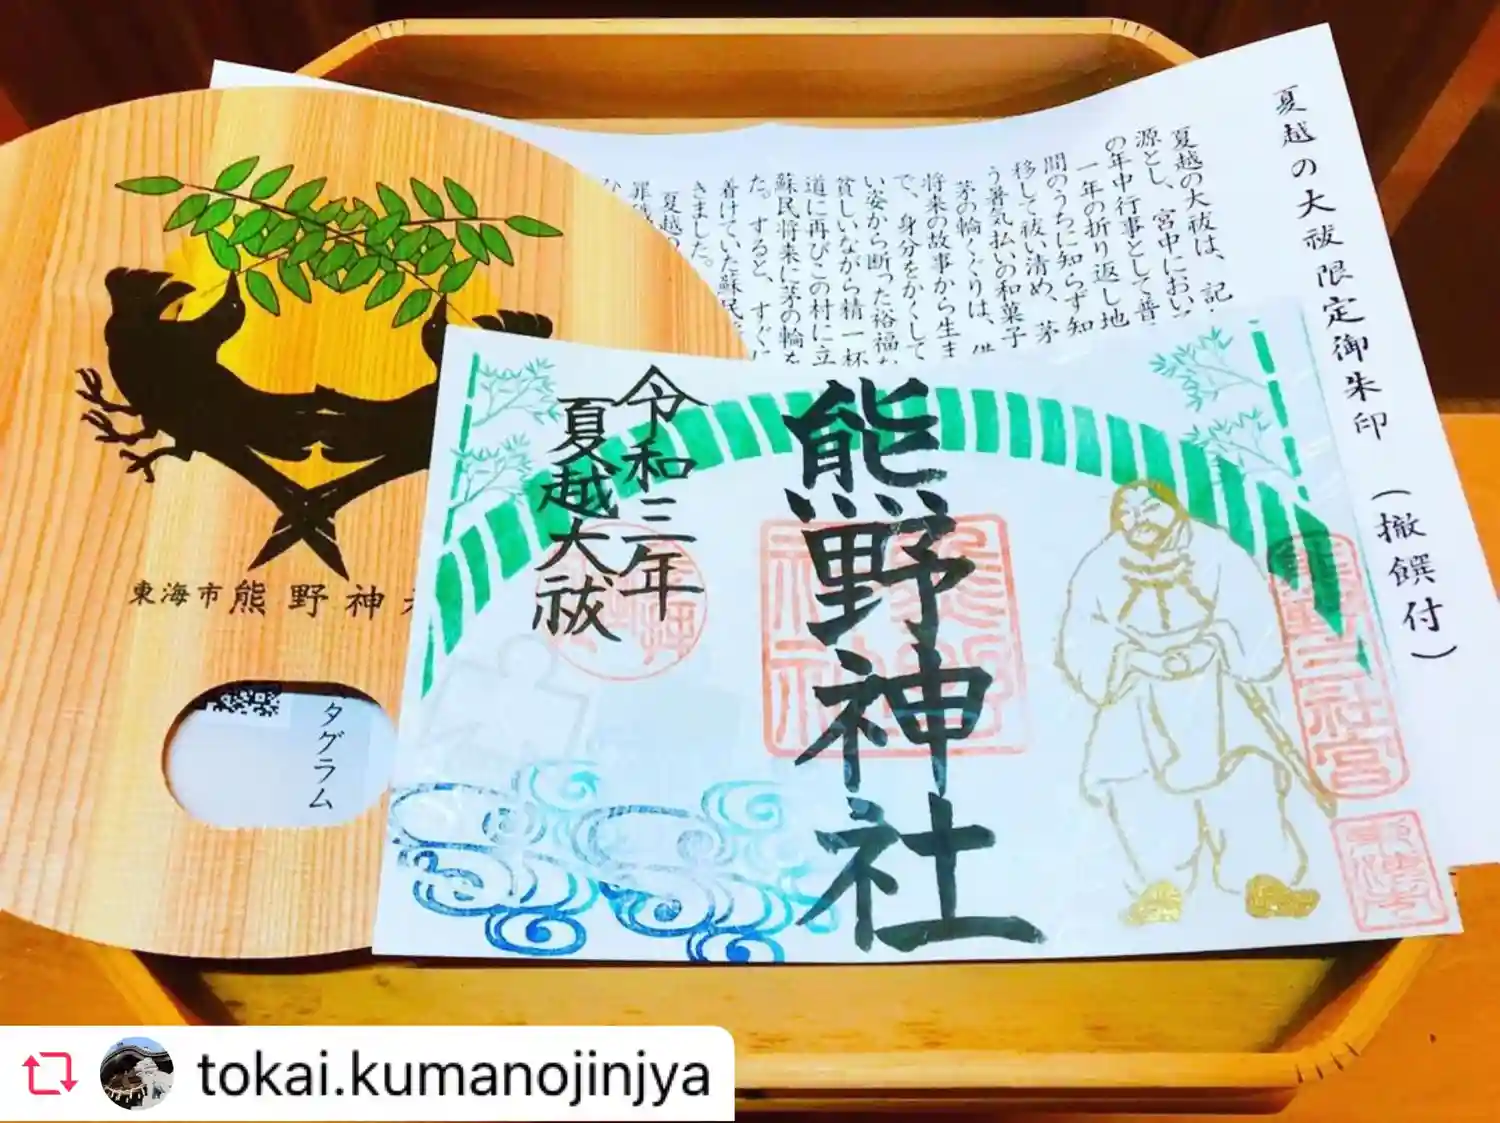 夏越の大祓限定御朱印（撤饌付）
夏越の大祓は、記
源とし、宮中におい
の年中行事として普
一年の折り返し地
間のうちに知らず知
移して祓い清め、茅
う暑気払いの和菓子
茅の輪くぐりは、
将来の故事から生ま
で、身分をかくして
い姿から断った裕福な
貧しいながら精一杯
道に再びこの村に立
蘇民将来に茅の輪を
た。すると、すぐに
着けていた蘇民
きました。
夏越の
罪
ひ
熊野神社
令和三年
夏越大祓
熊野
神社
熊野三社宮
東海市熊野神
タグラム
tokai.kumanojinjya